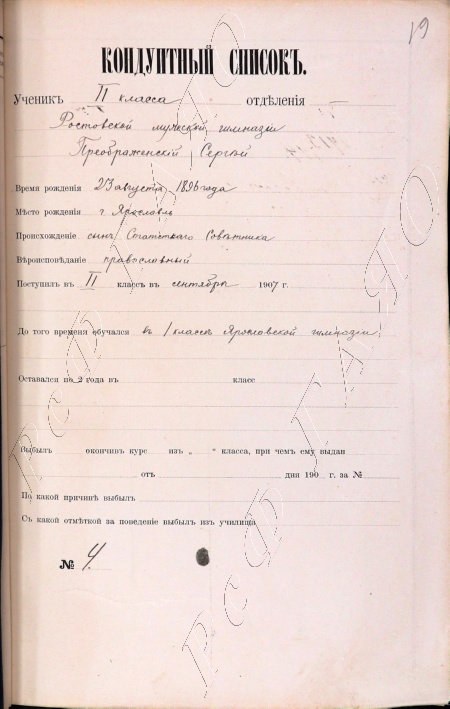 19
КОНДУИТНЫЙ СПИСОКЪ.
Ученикъ II класса отдѣленія
Ростовской мужской гимназіи
Преображенскій Сергѣй
Время рожденія 23 августа 1896 года
Мѣсто рожденія г Ярославль
Происхожденіе сынъ Статскаго Совѣтника
Вѣроисповѣданіе православный
Поступилъ въ II классъ въ сентябрѣ 1907 г.
До того времени обучался въ 1 классѣ Ярославской гимназіи
Оставался по 2 года въ классѣ
Выбылъ окончивъ курс изъ „ “ класса, при чемъ ему выданъ
отъ дня 190 г. за №
По какой причинѣ выбылъ
Съ какой отмѣткой за поведеніе выбылъ изъ училища
№ 4.
РСФ ГАЯО